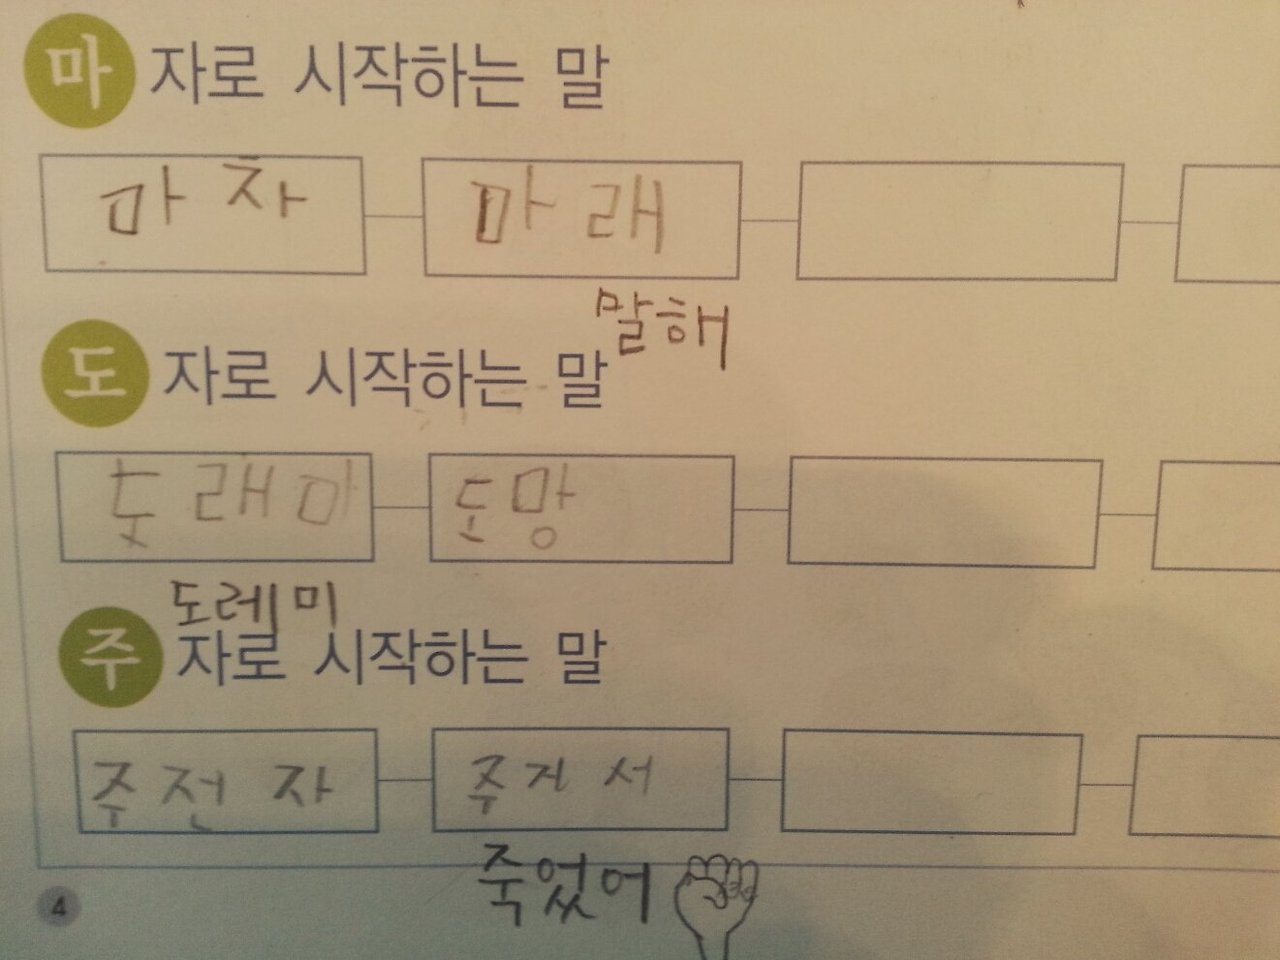 마 자로 시작하는 말
마차 마래
말해
도 자로 시작하는 말
도래미 도망
도레미
주 자로 시작하는 말
주전자 주거서
죽었어
4